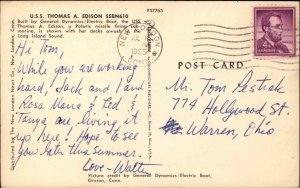 P37765
U.S.S. THOMAS A. EDISON SSBN610
Built by General Dynamics/Electric Boat, the USS
Thomas A. Edison, a Polaris missile firing
marine, is shown with her decks awash
Long Island Sound.
Hi Tom,
While you are working
hard, Jack and I and
Rose Marie & Ted &
Tanya are living it
up here! Hope to see
you later this summer.
Love - Walter
POST CARD
Mr. Tom Pestiak
774 Hollywood St.
Warren, Ohio
Distributed by The New London News Co., New London, Conn.
Picture credit by General Dynamics/Electric Boat,
Groton, Conn.